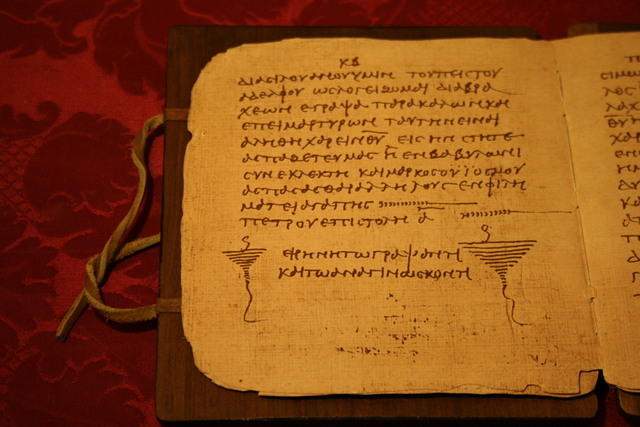 ΚΒ
ΔΙΑΣΙΛΟΥΑΝΟΥΥΜΕΙΝ ΤΟΥΠΕΙΣΤΟΥ
ΑΔΕΛΦΟΥ ΩΣΛΟΓΕΙΖΟΜΑΙ ΔΙΑΒΡΑ
ΧΕΩΝ ΕΓΡΑΨΑ ΠΑΡΑΚΑΛΩΝ ΚΑΙ
ΕΠΕΙΜΑΡΤΥΡΩΝ ΤΑΥΤΗΝΕΙΝΑΙ
ΑΛΗΘΗ ΧΑΡΕΙΝ ΘΥ ΕΙΣ ΗΝ ΣΤΗΤΕ
ΑΣΠΑΖΕΤΕΥΜΑΣ Η ΕΝ ΒΑΒΥΛΩΝΙ
ΣΥΝΕΚΛΕΚΤΗ ΚΑΙΜΑΡΚΟΣΟΥΙΟΣΜΟΥ
ΑΣΠΑΣΑΣΘΑΙΑΛΛΗΛΟΥΣ ΕΝΦΙΛΗ
ΜΑΤΕΙΑΓΑΠΗΣ
ΠΕΤΡΟΥΕΠΙΣΤΟΛΗ Α
ΕΙΡΗΝΗΤΩΓΡΑΨΑΝΤΙ
ΚΑΙΤΩΑΝΑΓΙΝΩΣΚΟΝΤΙ